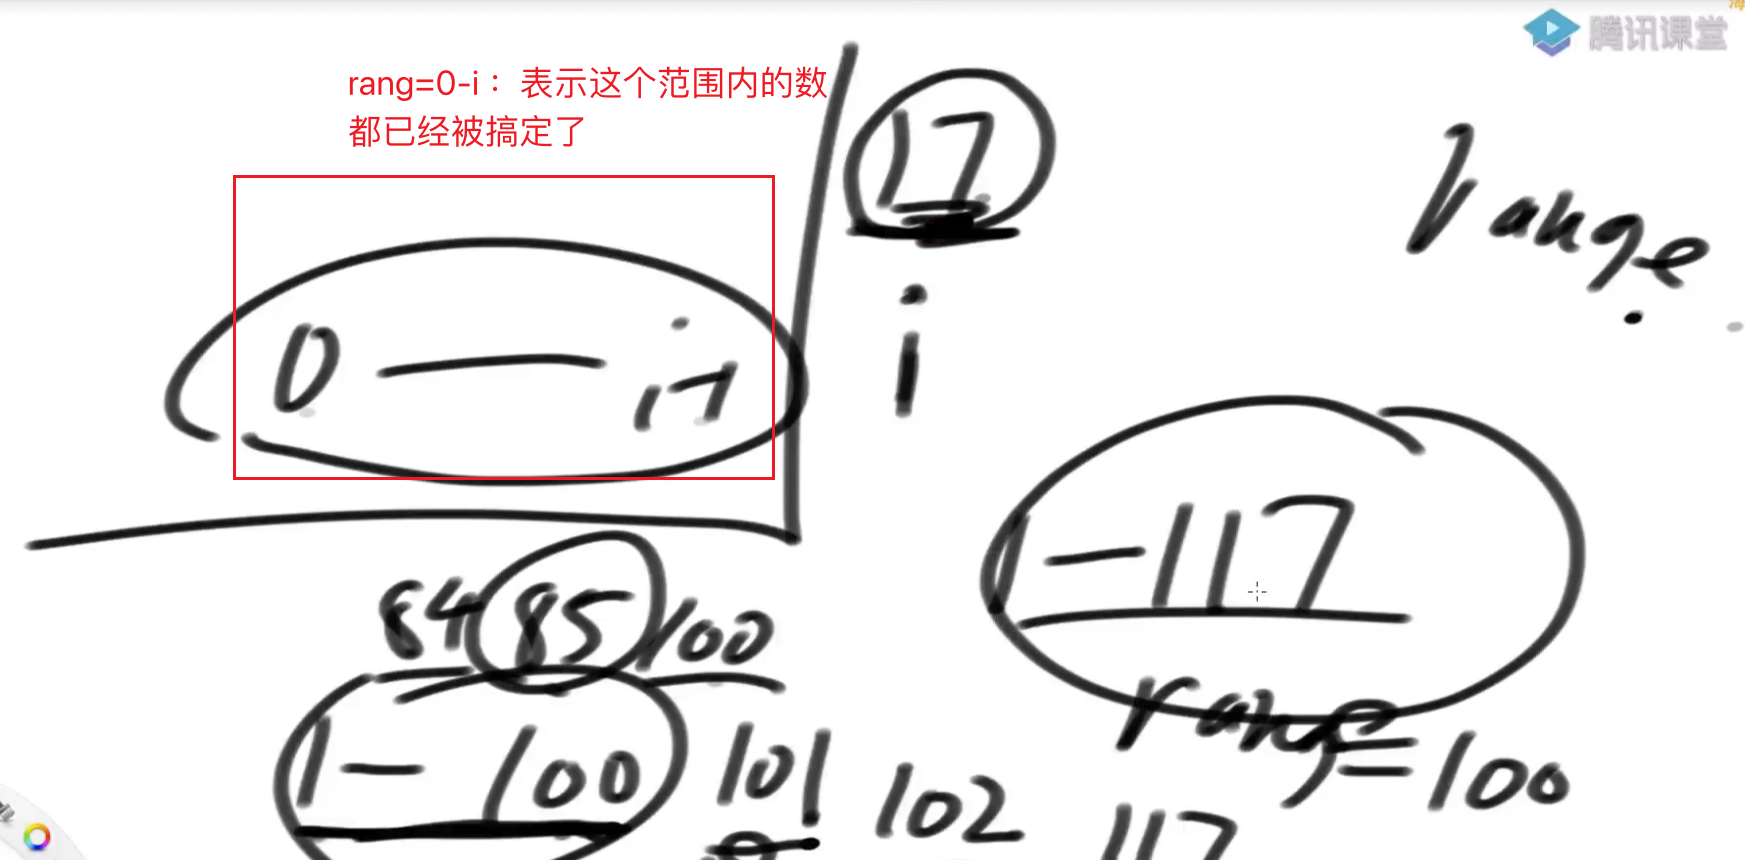 腾讯课堂
rang=0-i：表示这个范围内的数
都已经被搞定了
17
range
0 — i-1
i
1-117
84 85 100
rang=100
1 - 100 101 102 117